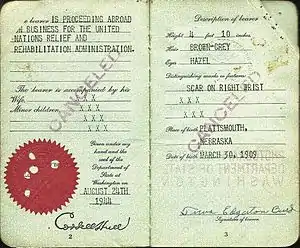 e bearer IS PROCEEDING ABROAD
ON BUSINESS FOR THE UNITED
NATIONS RELIEF AND
REHABILITATION ADMINISTRATION.
The bearer is accompanied by his
Wife, XXX
Minor children, XXX
XXX
XXX
CANCELED
Given under my
hand and the
seal of the
Department
of State at
Washington on
AUGUST 28TH
1944
Cordell Hull
2
Description of bearer
Height 4 feet 10 inches
Hair BROWN-GREY
Eyes HAZEL
Distinguishing marks or features:
SCAR ON RIGHT WRIST
XXX
XXX
CANCELED
Place of birth PLATTSMOUTH,
NEBRASKA
Date of birth MARCH 30, 1909
Signature of bearer
3